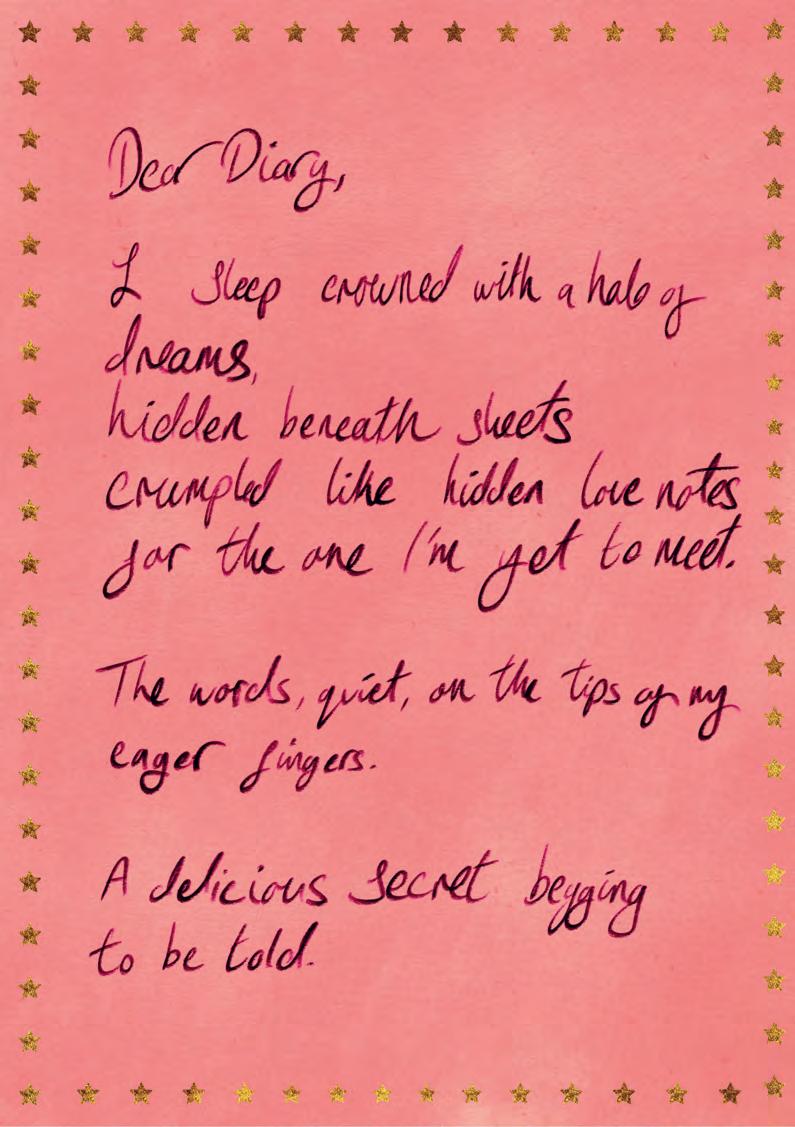 Dear Diary,
I sleep crowned with a halo of
dreams,
hidden beneath sheets
crumpled like hidden love notes
for the one I'm yet to meet.
The words, quiet, on the tips of my
eager fingers.
A delicious secret begging
to be told.